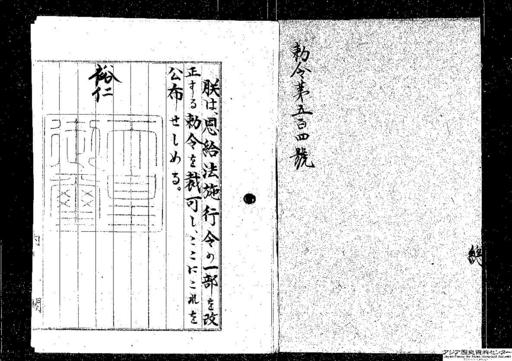 勅令第五百四號
朕は、恩給法施行令の一部を改
正する勅令を裁可し、ここにこれを
公布せしめる。
裕仁
天皇御璽
アジア歴史資料センター